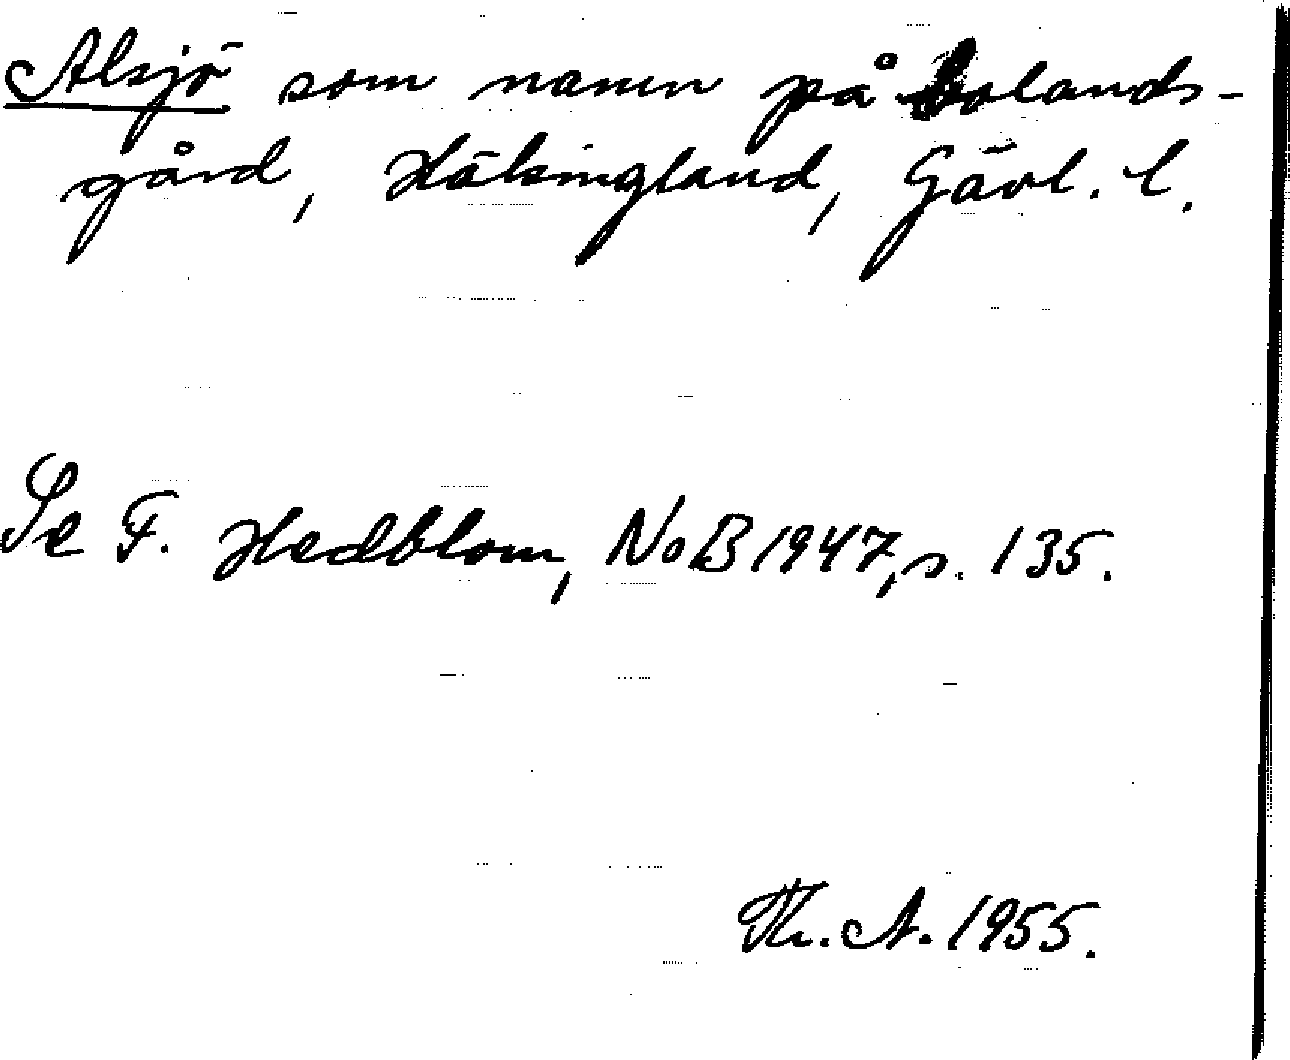 Alsjö som namn på bolands-
gård, Hälsingland, Gävl. l.
Se F. Hedblom, NoB 1947, s. 135.
Th. A. 1955.